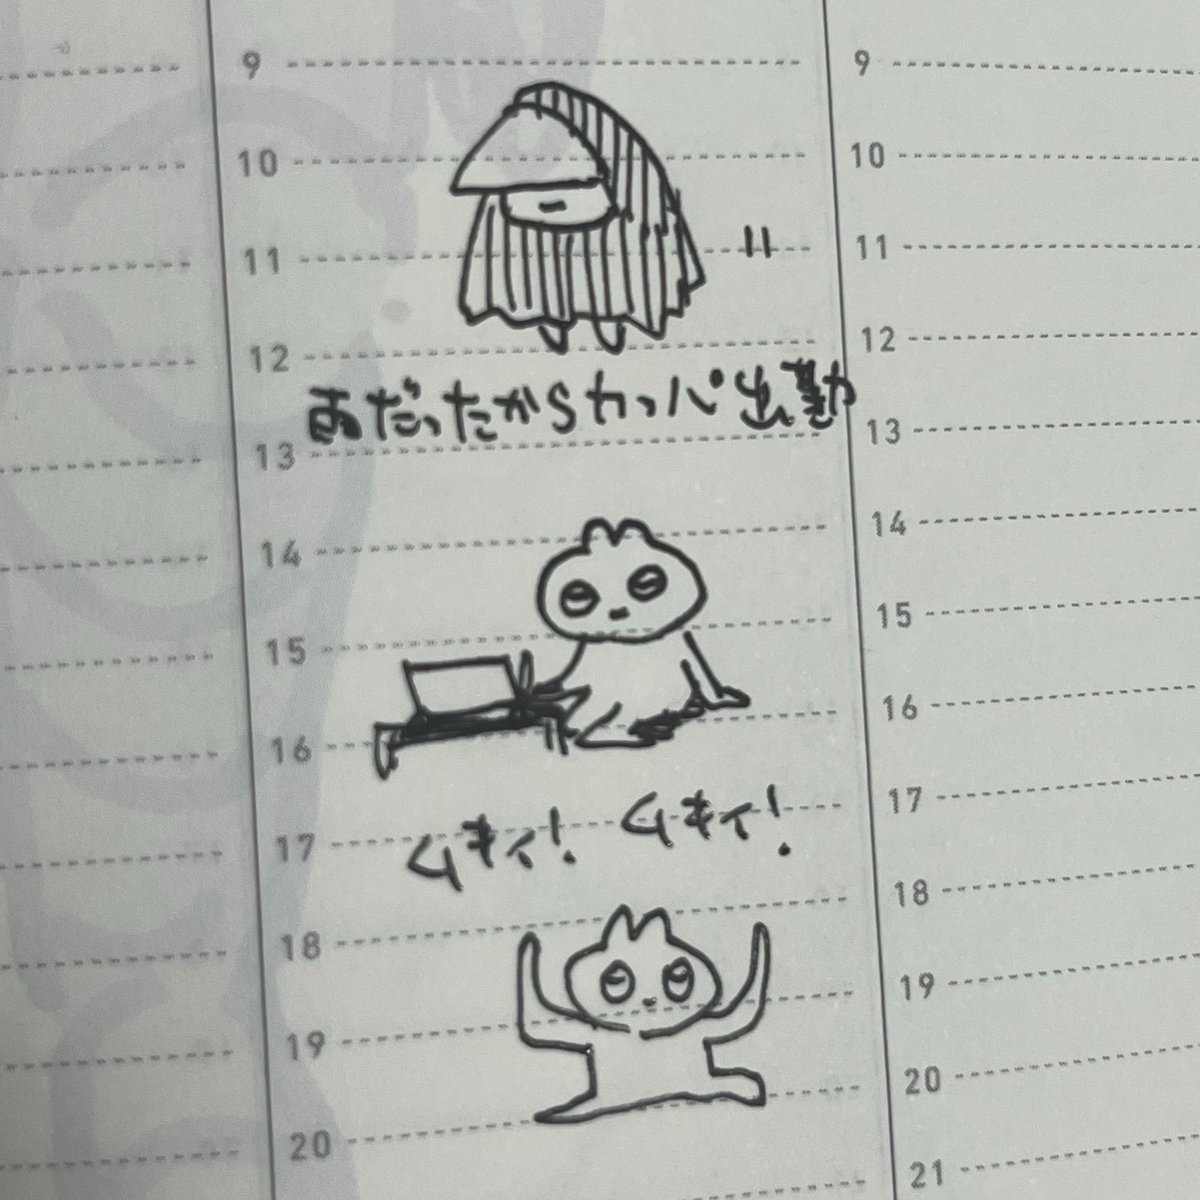 9
10
11
12
雨だったからカッパ出勤
13
14
15
16
ムキィ! ムキィ!
17
18
19
20
9
10
11
12
13
14
15
16
17
18
19
20
21